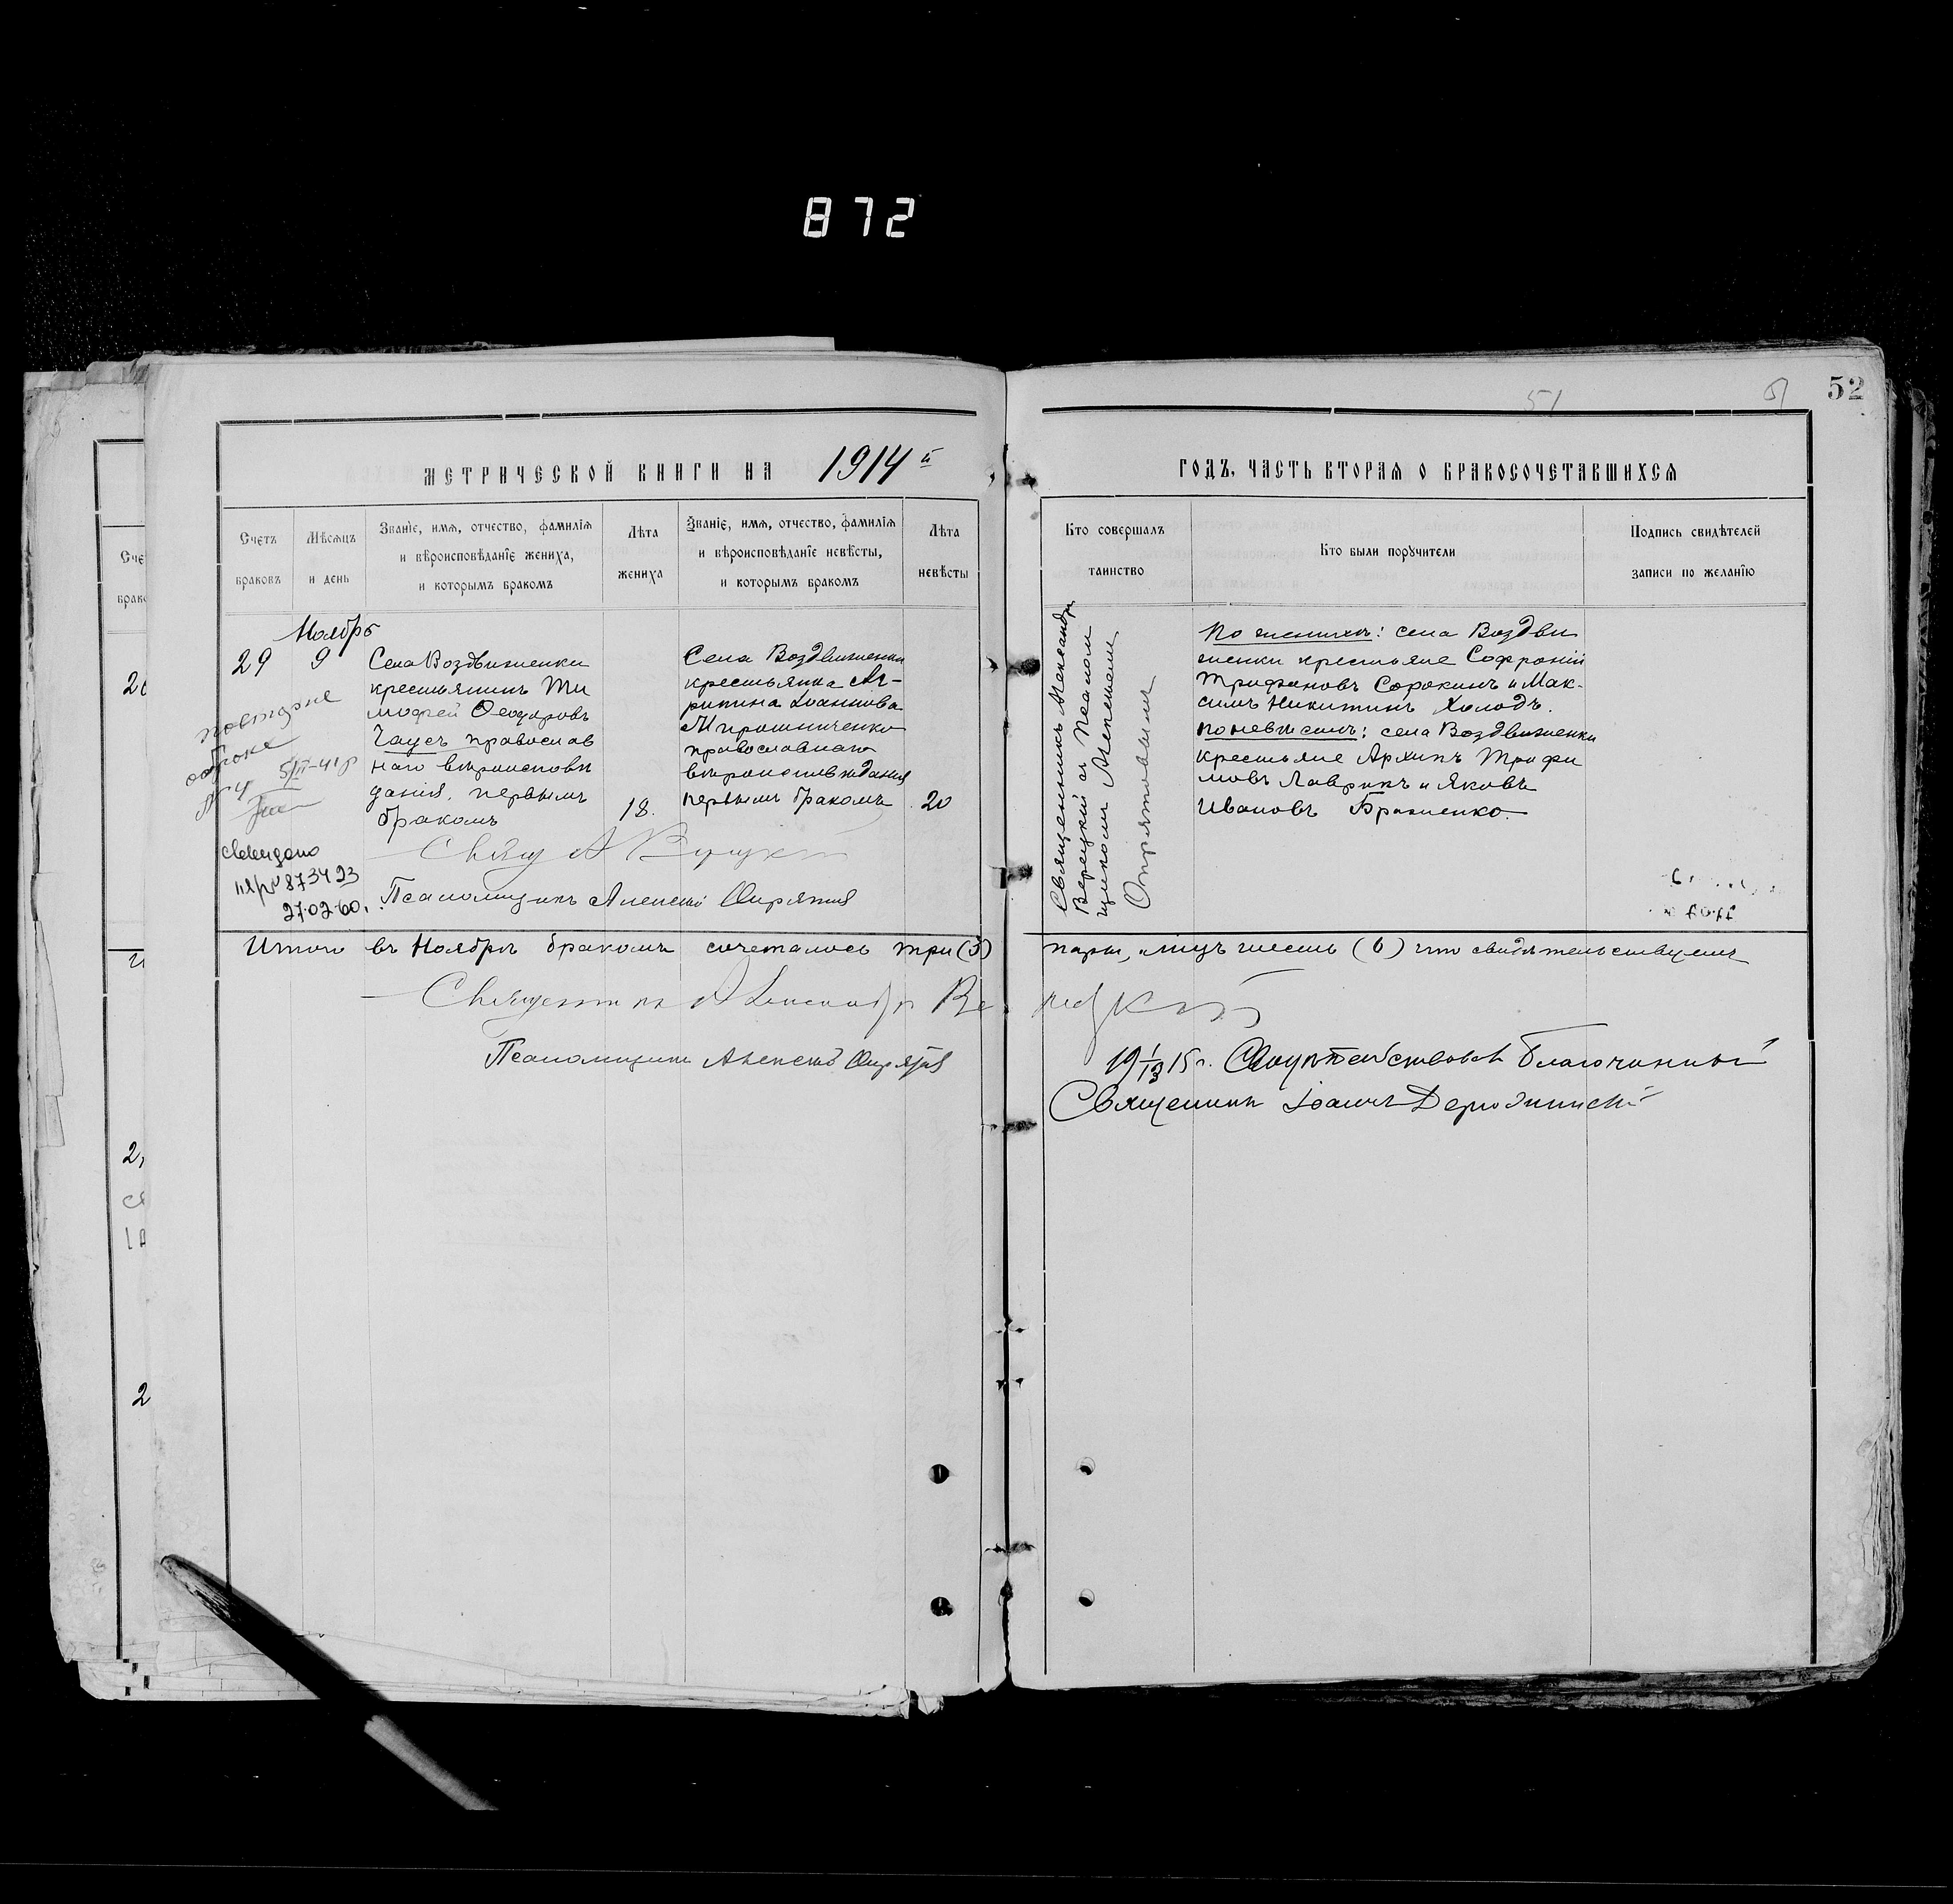 872
52
51
МЕТРИЧЕСКОЙ КНИГИ НА 1914й
ГОДЪ, ЧАСТЬ ВТОРАЯ О БРАКОСОЧЕТАВШИХСЯ
Счетъ
браковъ
Мѣсяцъ
и день
Званіе, имя, отчество, фамилія
и вѣроисповѣданіе жениха,
и которымъ бракомъ
Лѣта
жениха
Званіе, имя, отчество, фамилія
и вѣроисповѣданіе невѣсты,
и которымъ бракомъ
Лѣта
невѣсты
Кто совершалъ
таинство
Кто были поручители
Подпись свидѣтелей
записи по желанію
Ноябрь
29
9
Села Воздвиженки
крестьянинъ Ти
мофей Ѳеодоровъ
Чаусъ православ
наго вѣроисповѣ
данія, первымъ
бракомъ
18.
Села Воздвиженки
крестьянка Аг-
рипина Іоаннова
Мирошниченко
православнаго
вѣроисповѣданія
первымъ бракомъ
20
повторне
№ 4
873423
27.02.60.
Псаломщикъ Алексій Опрятовъ
Священникъ Александръ
Верецкій съ Псалом
щикомъ Алексѣемъ
Опрятовымъ
По женихѣ: села Воздви
женки крестьяне Софроній
Трифановъ Сорокинъ и Мак-
симъ Никитинъ Холодъ.
по невѣстѣ: села Воздвиженки
крестьяне Архипъ Трофи
мовъ Лаврикъ и Яковъ
Ивановъ Бражненко.
Итого въ Ноябрѣ бракомъ сочеталось три (3) пары, лицъ шесть (6) что свидѣтельствуемъ
Священникъ Александръ Верецкій
Псаломщикъ Алексѣй Опрятовъ
15 г. Благочинный
Священникъ Іоаннъ